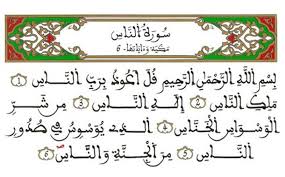 سُورَةُ النَّاسِ
مَكِّيَّة وَءَايَاتُهَا 6
بِسْمِ اللَّهِ الرَّحْمَٰنِ الرَّحِيمِ قُلَ اَعُوذُ بِرَبِّ النَّاسِ 1
مَلِكِ النَّاسِ 2 إِلَٰهِ النَّاسِ 3 مِن شَرِّ
الْوَسْوَاسِ الْخَنَّاسِ 4 الَّذِي يُوَسْوِسُ فِي صُدُورِ
النَّاسِ 5 مِنَ الْجِنَّةِ وَالنَّاسِ 6